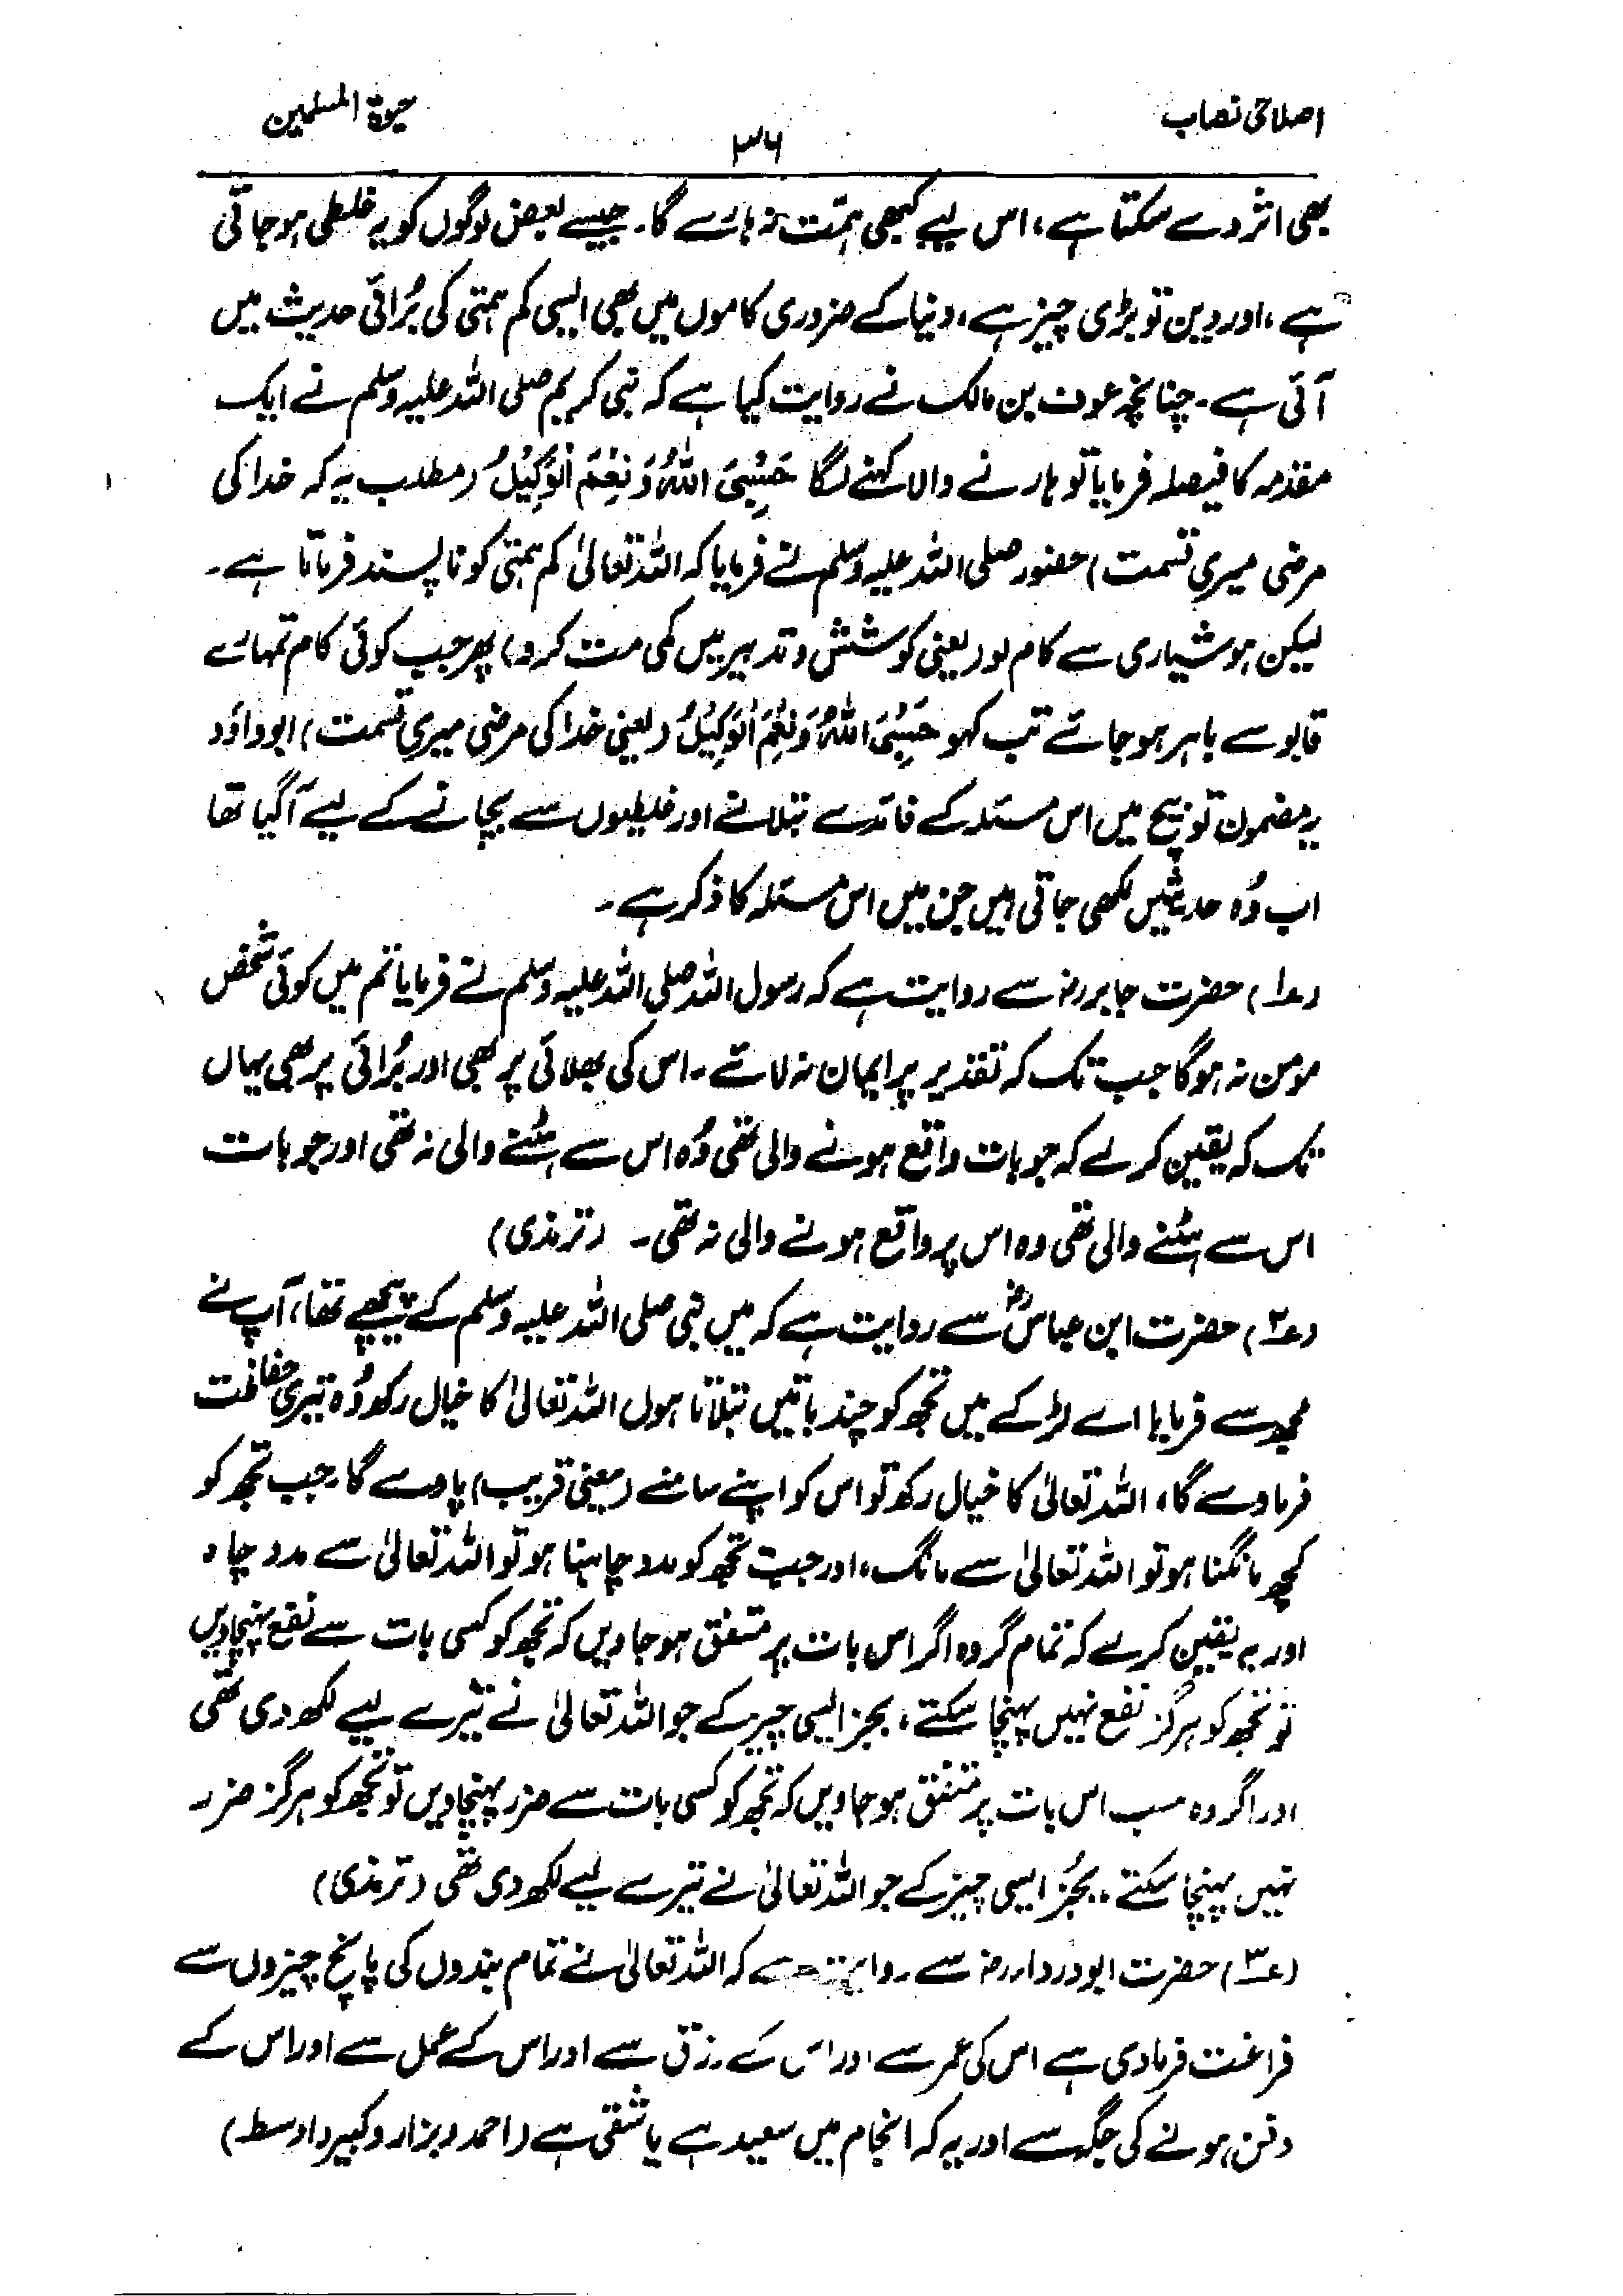 اصلاحی نصاب
۳۶
حیوٰۃ المسلمین
بھی اثر دے سکتا ہے، اس لیے کبھی ہمّت نہ ہارے گا۔ جیسے بعض لوگوں کو یہ غلطی ہو جاتی
ہے، اور دین تو بڑی چیز ہے، دنیا کے ضروری کاموں میں بھی ایسی کم ہمتی کی بُرائی حدیث میں
آئی ہے۔ چنانچہ عوف بن مالک نے روایت کیا ہے کہ نبی کریم صلی اللہ علیہ وسلم نے ایک
مقدمہ کا فیصلہ فرمایا تو ہارنے والا کہنے لگا حَسْبِیَ اللّٰہُ وَنِعْمَ الْوَکِیْلُ (مطلب یہ کہ خدا کی
مرضی میری قسمت) حضور صلی اللہ علیہ وسلم نے فرمایا کہ اللہ تعالیٰ کم ہمتی کو ناپسند فرماتا ہے۔
لیکن ہوشیاری سے کام لو (یعنی کوشش و تدبیر میں کمی مت کرو) پھر جب کوئی کام تمہارے
قابو سے باہر ہو جائے تب کہو حَسْبِیَ اللّٰہُ وَنِعْمَ الْوَکِیْلُ (یعنی خدا کی مرضی میری قسمت) ابوداؤد
یہ مضمون تو بیچ میں اس مسئلہ کے فائدے بتلانے اور غلطیوں سے بچانے کے لیے آگیا تھا
اب وُہ حدیثیں لکھی جاتی ہیں جن میں اس مسئلہ کا ذکر ہے۔
(۱) حضرت جابر رضہ سے روایت ہے کہ رسول اللہ صلی اللہ علیہ وسلم نے فرمایا تم میں کوئی شخص
مومن نہ ہوگا جب تک کہ تقدیر پر ایمان نہ لائے۔ اس کی بھلائی پر بھی اور بُرائی پر بھی یہاں
تک کہ یقین کر لے کہ جو بات واقع ہونے والی تھی وُہ اس سے ہٹنے والی نہ تھی اور جو بات
اس سے ہٹنے والی تھی وہ اس پر واقع ہونے والی نہ تھی۔ (ترمذی)
(۲) حضرت ابن عباسؓ سے روایت ہے کہ میں نبی صلی اللہ علیہ وسلم کے پیچھے تھا، آپ نے
مجھ سے فرمایا اے لڑکے میں تجھ کو چند باتیں بتلاتا ہوں اللہ تعالیٰ کا خیال رکھ وُہ تیری حفاظت
فرماوے گا، اللہ تعالیٰ کا خیال رکھ تو اس کو اپنے سامنے (یعنی قریب) پاوے گا، جب تجھ کو
کچھ مانگنا ہو تو اللہ تعالیٰ سے مانگ، اور جب تجھ کو مدد چاہنا ہو تو اللہ تعالیٰ سے مدد چاہ
اور یہ یقین کر لے کہ تمام گروہ اگر اس بات پر متفق ہو جاویں کہ تجھ کو کسی بات سے نفع پہنچاویں
تو تجھ کو ہرگز نفع نہیں پہنچا سکتے، بجز ایسی چیز کے جو اللہ تعالیٰ نے تیرے لیے لکھ دی تھی
اور اگر وہ سب اس بات پر متفق ہو جاویں کہ تجھ کو کسی بات سے ضرر پہنچاویں تو تجھ کو ہرگز ضرر
نہیں پہنچا سکتے۔ بجُز ایسی چیز کے جو اللہ تعالیٰ نے تیرے لیے لکھ دی تھی (ترمذی)
(۳) حضرت ابو درداء رضہ سے روایت ہے کہ اللہ تعالیٰ نے تمام بندوں کی پانچ چیزوں سے
فراغت فرمادی ہے اس کی عمر سے اور اس کے رزق سے اور اس کے عمل سے اور اس کے
دفن ہونے کی جگہ سے اور یہ کہ انجام میں سعید ہے یا شقی ہے (احمد و بزار و کبیر و اوسط)